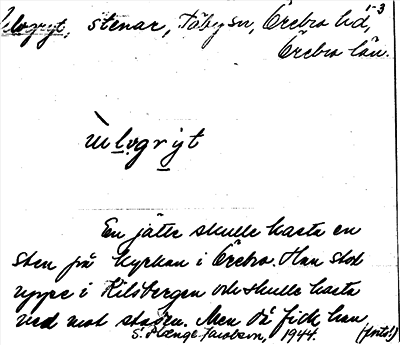 Ulvgryt, stenar, Täby sn, Örebro hd, 1-3
Örebro län.
ùlvgrỳt
En jätte skulle kasta en
sten på kyrkan i Örebro. Han stod
uppe i Kilsbergen och skulle kasta
ned mot staden. Men då fick han
S. Plænge Jacobson, 1944. (forts!)